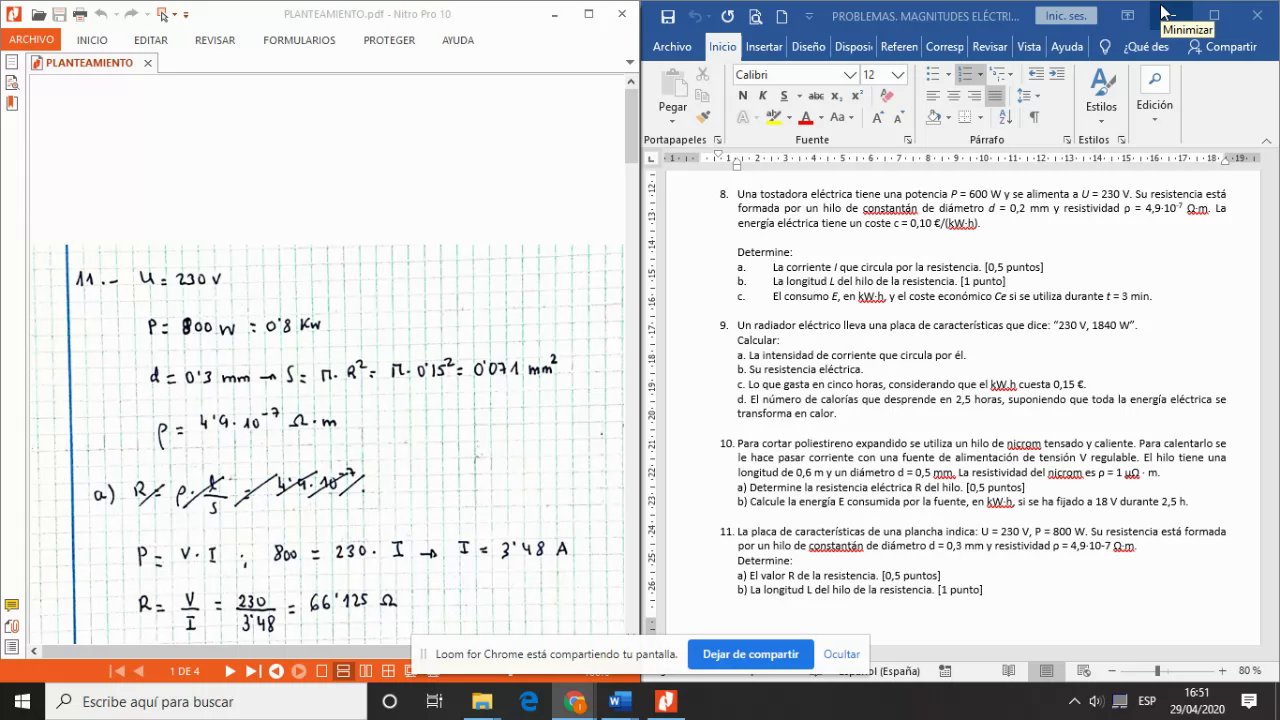 PLANTEAMIENTO.pdf - Nitro Pro 10
ARCHIVO INICIO EDITAR REVISAR FORMULARIOS PROTEGER AYUDA
PLANTEAMIENTO
11.- U = 230 V
P = 800 W = 0'8 Kw
d = 0'3 mm → S = π. R² = π. 0'15² = 0'071 mm²
ρ = 4'9.10⁻⁷ Ω.m
a) R = ρ. l/S = 4'9.10⁻⁷.
P = V. I ; 800 = 230. I → I = 3'48 A
R = V/I = 230/3'48 = 66'125 Ω
1 DE 4
PROBLEMAS. MAGNITUDES ELÉCTRI... Inic. ses.
Minimizar
Archivo Inicio Insertar Diseño Disposi Referen Corresp Revisar Vista Ayuda ¿Qué des Compartir
Calibri 12
Pegar N K S abc x₂ x² Estilos Edición
A A Aa A A
Portapapeles Fuente Párrafo Estilos
1 1 2 3 4 5 6 7 8 9 10 11 12 13 14 15 16 17 18 19
8. Una tostadora eléctrica tiene una potencia P = 600 W y se alimenta a U = 230 V. Su resistencia está
formada por un hilo de constantán de diámetro d = 0,2 mm y resistividad ρ = 4,9·10⁻⁷ Ω·m. La
energía eléctrica tiene un coste c = 0,10 €/(kW·h).
Determine:
a. La corriente I que circula por la resistencia. [0,5 puntos]
b. La longitud L del hilo de la resistencia. [1 punto]
c. El consumo E, en kW·h, y el coste económico Ce si se utiliza durante t = 3 min.
9. Un radiador eléctrico lleva una placa de características que dice: "230 V, 1840 W".
Calcular:
a. La intensidad de corriente que circula por él.
b. Su resistencia eléctrica.
c. Lo que gasta en cinco horas, considerando que el kW.h cuesta 0,15 €.
d. El número de calorías que desprende en 2,5 horas, suponiendo que toda la energía eléctrica se
transforma en calor.
10. Para cortar poliestireno expandido se utiliza un hilo de nicrom tensado y caliente. Para calentarlo se
le hace pasar corriente con una fuente de alimentación de tensión V regulable. El hilo tiene una
longitud de 0,6 m y un diámetro d = 0,5 mm. La resistividad del nicrom es ρ = 1 μΩ · m.
a) Determine la resistencia eléctrica R del hilo. [0,5 puntos]
b) Calcule la energía E consumida por la fuente, en kW·h, si se ha fijado a 18 V durante 2,5 h.
11. La placa de características de una plancha indica: U = 230 V, P = 800 W. Su resistencia está formada
por un hilo de constantán de diámetro d = 0,3 mm y resistividad ρ = 4,9·10-7 Ω·m.
Determine:
a) El valor R de la resistencia. [0,5 puntos]
b) La longitud L del hilo de la resistencia. [1 punto]
Loom for Chrome está compartiendo tu pantalla. Dejar de compartir Ocultar
(España) 80 %
Escribe aquí para buscar
ESP 16:51
29/04/2020